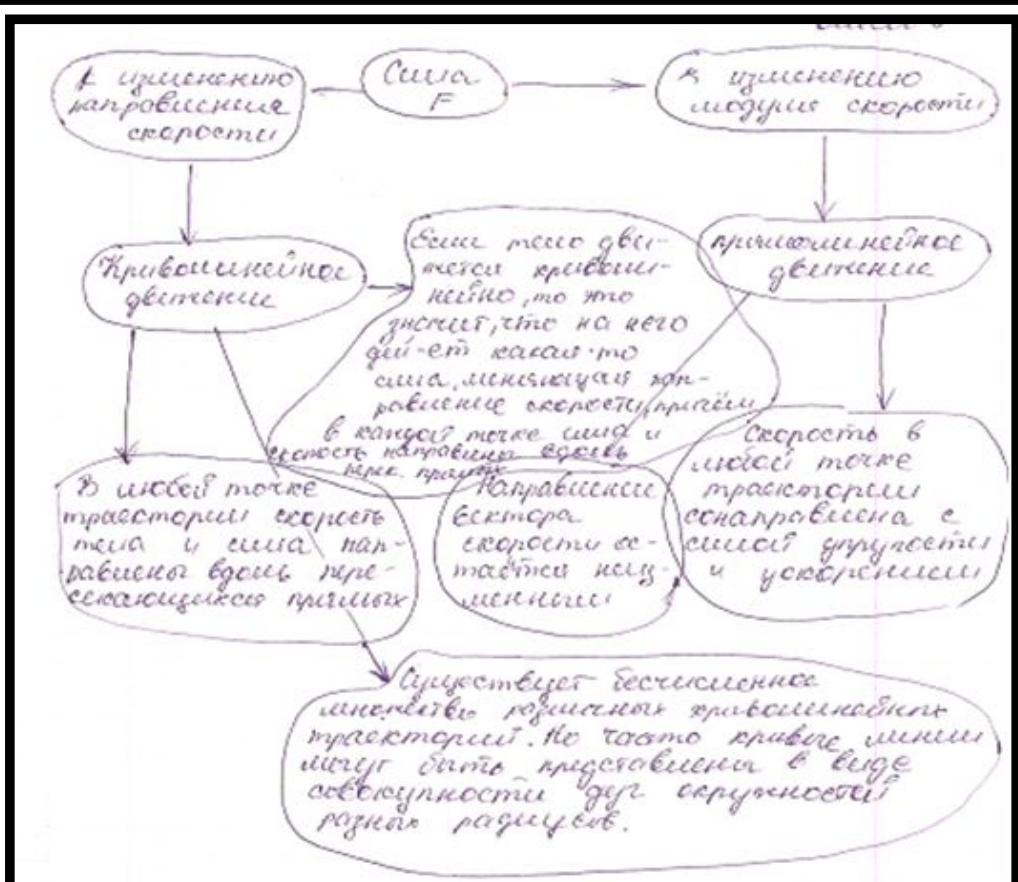 к изменению
направления
скорости
Сила
F
к изменению
модуля скорости
Криволинейное
движение
Если тело дви-
жется криволи-
нейно, то это
значит, что на него
дей-ет какая-то
сила, меняющая нап-
равление скорости, причём
в каждой точке сила и
скорость направлены вдоль
перек. прямых
прямолинейное
движение
В любой точке
траектории скорость
тела и сила нап-
равлены вдоль пере-
секающихся прямых
Направление
вектора
скорости ос-
таётся неиз-
менным
Скорость в
любой точке
траектории
сонаправлена с
силой упругости
и ускорением
Существует бесчисленное
множество различных криволинейных
траекторий. Но часто кривые линии
могут быть представлены в виде
совокупности дуг окружностей
разных радиусов.